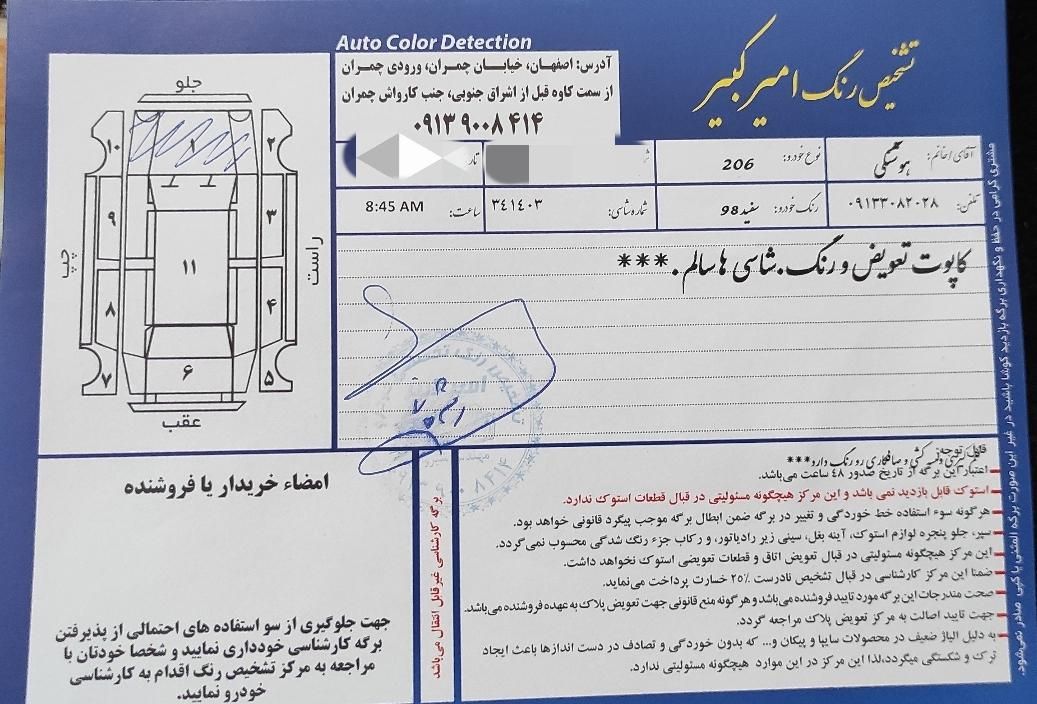 Auto Color Detection
تشخیص رنگ امیرکبیر
آدرس: اصفهان، خیابـان چمران، ورودی چمران
از سمت کاوه قبل از اشراق جنوبی، جنب کارواش چمران
۰۹۱۳ ۹۰۰۸ ۴۱۴
آقای/خانم: هوشنگی
نوع خودرو: 206
تلفن: ۰۹۱۳۳۰۸۲۰۲۸
رنگ خودرو: سفید 98
شماره شاسی: ۳۴۱۴۰۳
ساعت: 8:45 AM
کاپوت تعویض و رنگ.شاسی ها سالم.***
جلو
۱۰ ۱ ۲
۹ ۳
چپ ۱۱ راست
۸ ۴
۷ ۶ ۵
عقب
امضاء خریدار یا فروشنده
جهت جلوگیری از سو استفاده های احتمالی از پذیرفتن
برگه کارشناسی خودداری نمایید و شخصا خودتان با
مراجعه به مرکز تشخیص رنگ اقدام به کارشناسی
خودرو نمایید.
برگه کارشناسی غیرقابل انتقال می‌باشد
قابل توجه:
اعتبار این برگه از تاریخ صدور ۴۸ ساعت می‌باشد.
استوک قابل بازدید نمی باشد و این مرکز هیچگونه مسئولیتی در قبال قطعات استوک ندارد.
هرگونه سوء استفاده خط خوردگی و تغییر در برگه ضمن ابطال برگه موجب پیگرد قانونی خواهد بود.
سپر، جلو پنجره لوازم استوک، آینه بغل، سینی زیر رادیاتور، و رکاب جزء رنگ شدگی محسوب نمی‌گردد.
این مرکز هیچگونه مسئولیتی در قبال تعویض اتاق و قطعات تعویضی استوک نخواهد داشت.
ضمنا این مرکز کارشناسی در قبال تشخیص نادرست ۲۵٪ خسارت پرداخت می‌نماید.
صحت مندرجات این برگه مورد تایید فروشنده می‌باشد و هرگونه منع قانونی جهت تعویض پلاک به عهده فروشنده می‌باشد.
جهت تایید اصالت به مرکز تعویض پلاک مراجعه گردد.
به دلیل الیاژ ضعیف در محصولات سایپا و پیکان و... که بدون خوردگی و تصادف در دست اندازها باعث ایجاد
ترک و شکستگی میگردد،لذا این مرکز در این موارد هیچگونه مسئولیتی ندارد.
مشتری گرامی در حفظ و نگهداری برگه بازدید کوشا باشید در غیر این صورت برگه المثنی یا کپی صادر نمی‌شود.